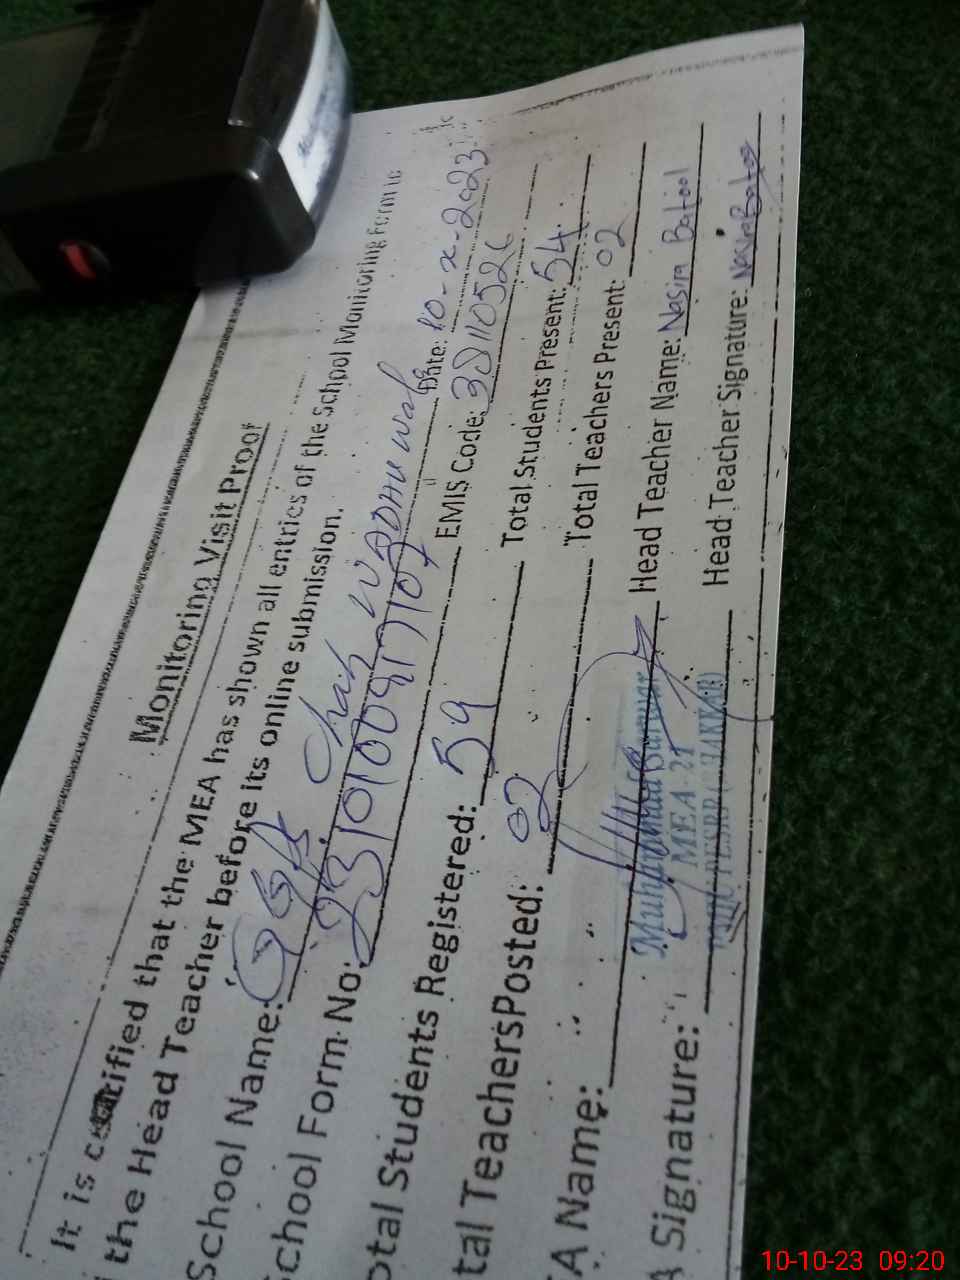 Monitoring Visit Proof
It is certified that the MEA has shown all entries of the School Monitoring Form to
the Head Teacher before its online submission.
School Name: GGPS Chah Wadhu wala Date: 10-x-2023
School Form No: EMIS Code:
otal Students Registered: 59 Total Students Present: 54
tal TeachersPosted: 02 Total Teachers Present: 02
A Name: Muhammad Head Teacher Name: Nasim Batool
Signature: MEA-21 Head Teacher Signature: Nasim Batool
10-10-23 09:20